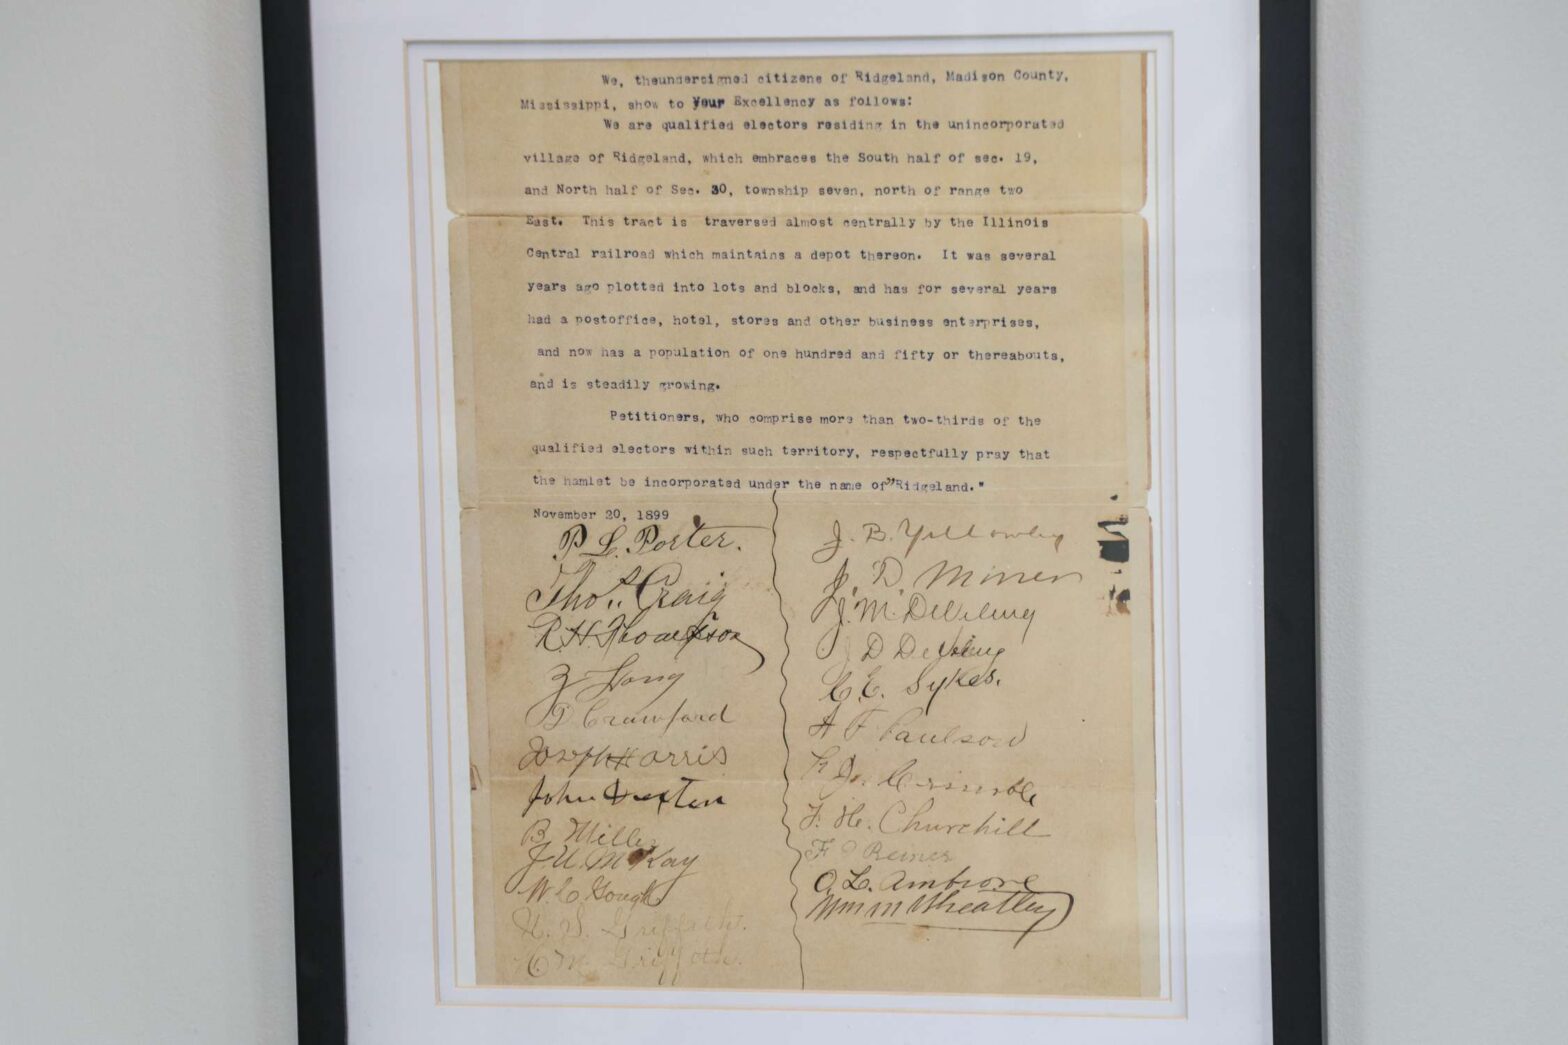 We, theundersigned citizens of Ridgeland, Madison County,
Mississippi, show to Your Excellency as follows:
We are qualified electors residing in the unincorporated
village of Ridgeland, which embraces the South half of sec. 19,
and North half of Sec. 30, township seven, north of range two
East. This tract is traversed almost centrally by the Illinois
Central railroad which maintains a depot thereon. It was several
years ago plotted into lots and blocks, and has for several years
had a postoffice, hotel, stores and other business enterprises,
and now has a population of one hundred and fifty or thereabouts,
and is steadily growing.
Petitioners, who comprise more than two-thirds of the
qualified electors within such territory, respectfully pray that
the hamlet be incorporated under the name of "Ridgeland."
November 20, 1899
P. L. Porter.
Thos. Craig
R. H. Thompson
Z Long
D Crawford
Joseph Harris
John
B Miller
J U McKay
W. C. Gough
H. S.
C M
J. B. Yellowley
J. D. Miner
J. M. DeViney
J D DeViney
C. E. Sykes.
A F Paulson
Jr. Crimble
F. H. Churchill
F Reiner
O. L. Ambrose
Wm M Wheatley